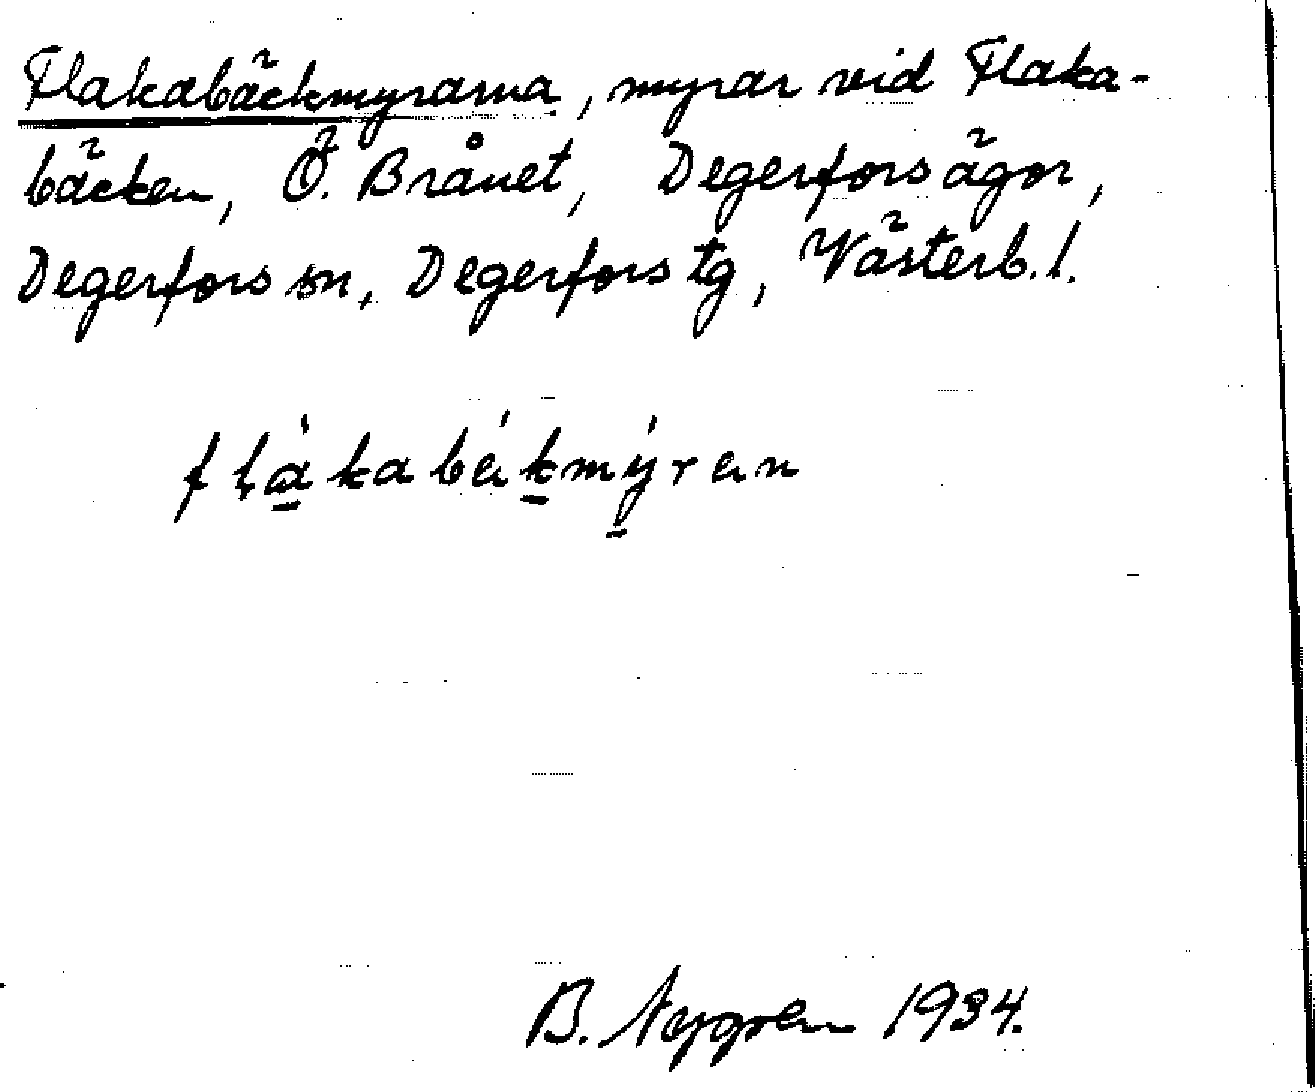 Flakabäckmyrarna, myrar vid Flaka-
bäcken, Ö. Brånet, Degerfors ägor,
Degerfors sn, Degerfors tg, Västerb. l.
flàkabákmýran
B. Nygren 1934.